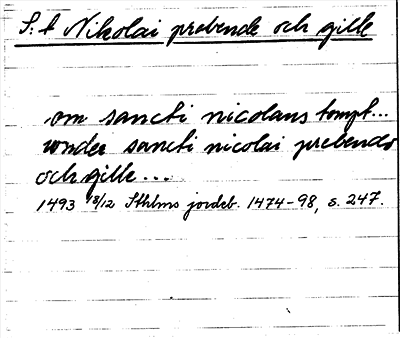 S:t Nikolai prebende och gille
om sancti nicolaus tompt...
wnder sancti nicolai prebende
och gille...
1493 18/12 Sthlms jordeb. 1474-98, s. 247.